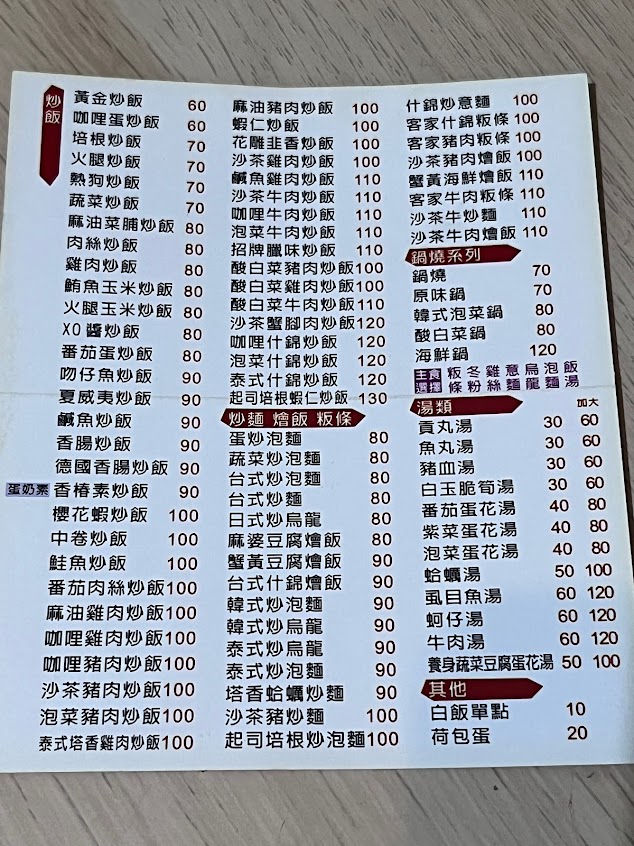 炒飯
黃金炒飯 60
咖哩蛋炒飯 60
培根炒飯 70
火腿炒飯 70
熱狗炒飯 70
蔬菜炒飯 70
麻油菜脯炒飯 80
肉絲炒飯 80
雞肉炒飯 80
鮪魚玉米炒飯 80
火腿玉米炒飯 80
XO醬炒飯 80
番茄蛋炒飯 80
吻仔魚炒飯 90
夏威夷炒飯 90
鹹魚炒飯 90
香腸炒飯 90
德國香腸炒飯 90
蛋奶素 香椿素炒飯 90
櫻花蝦炒飯 100
中卷炒飯 100
鮭魚炒飯 100
番茄肉絲炒飯 100
麻油雞肉炒飯 100
咖哩雞肉炒飯 100
咖哩豬肉炒飯 100
沙茶豬肉炒飯 100
泡菜豬肉炒飯 100
泰式塔香雞肉炒飯 100
麻油豬肉炒飯 100
蝦仁炒飯 100
花雕韭香炒飯 100
沙茶雞肉炒飯 100
鹹魚雞肉炒飯 110
沙茶牛肉炒飯 110
咖哩牛肉炒飯 110
泡菜牛肉炒飯 110
招牌臘味炒飯 110
酸白菜豬肉炒飯 100
酸白菜雞肉炒飯 100
酸白菜牛肉炒飯 110
沙茶蟹腳肉炒飯 120
咖哩什錦炒飯 120
泡菜什錦炒飯 120
泰式什錦炒飯 120
起司培根蝦仁炒飯 130
炒麵 燴飯 粄條
蛋炒泡麵 80
蔬菜炒泡麵 80
台式炒泡麵 80
台式炒麵 80
日式炒烏龍 80
麻婆豆腐燴飯 80
蟹黃豆腐燴飯 90
台式什錦燴飯 90
韓式炒泡麵 90
韓式炒烏龍 90
泰式炒烏龍 90
泰式炒泡麵 90
塔香蛤蠣炒麵 90
沙茶豬炒麵 100
起司培根炒泡麵 100
什錦炒意麵 100
客家什錦粄條 100
客家豬肉粄條 100
沙茶豬肉燴飯 100
蟹黃海鮮燴飯 110
客家牛肉粄條 110
沙茶牛炒麵 110
沙茶牛肉燴飯 110
鍋燒系列
鍋燒 70
原味鍋 70
韓式泡菜鍋 80
酸白菜鍋 80
海鮮鍋 120
主食 粄冬雞意烏泡飯
選擇 條粉絲麵龍麵湯
湯類 加大
貢丸湯 30 60
魚丸湯 30 60
豬血湯 30 60
白玉脆筍湯 30 60
番茄蛋花湯 40 80
紫菜蛋花湯 40 80
泡菜蛋花湯 40 80
蛤蠣湯 50 100
虱目魚湯 60 120
蚵仔湯 60 120
牛肉湯 60 120
養身蔬菜豆腐蛋花湯 50 100
其他
白飯單點 10
荷包蛋 20